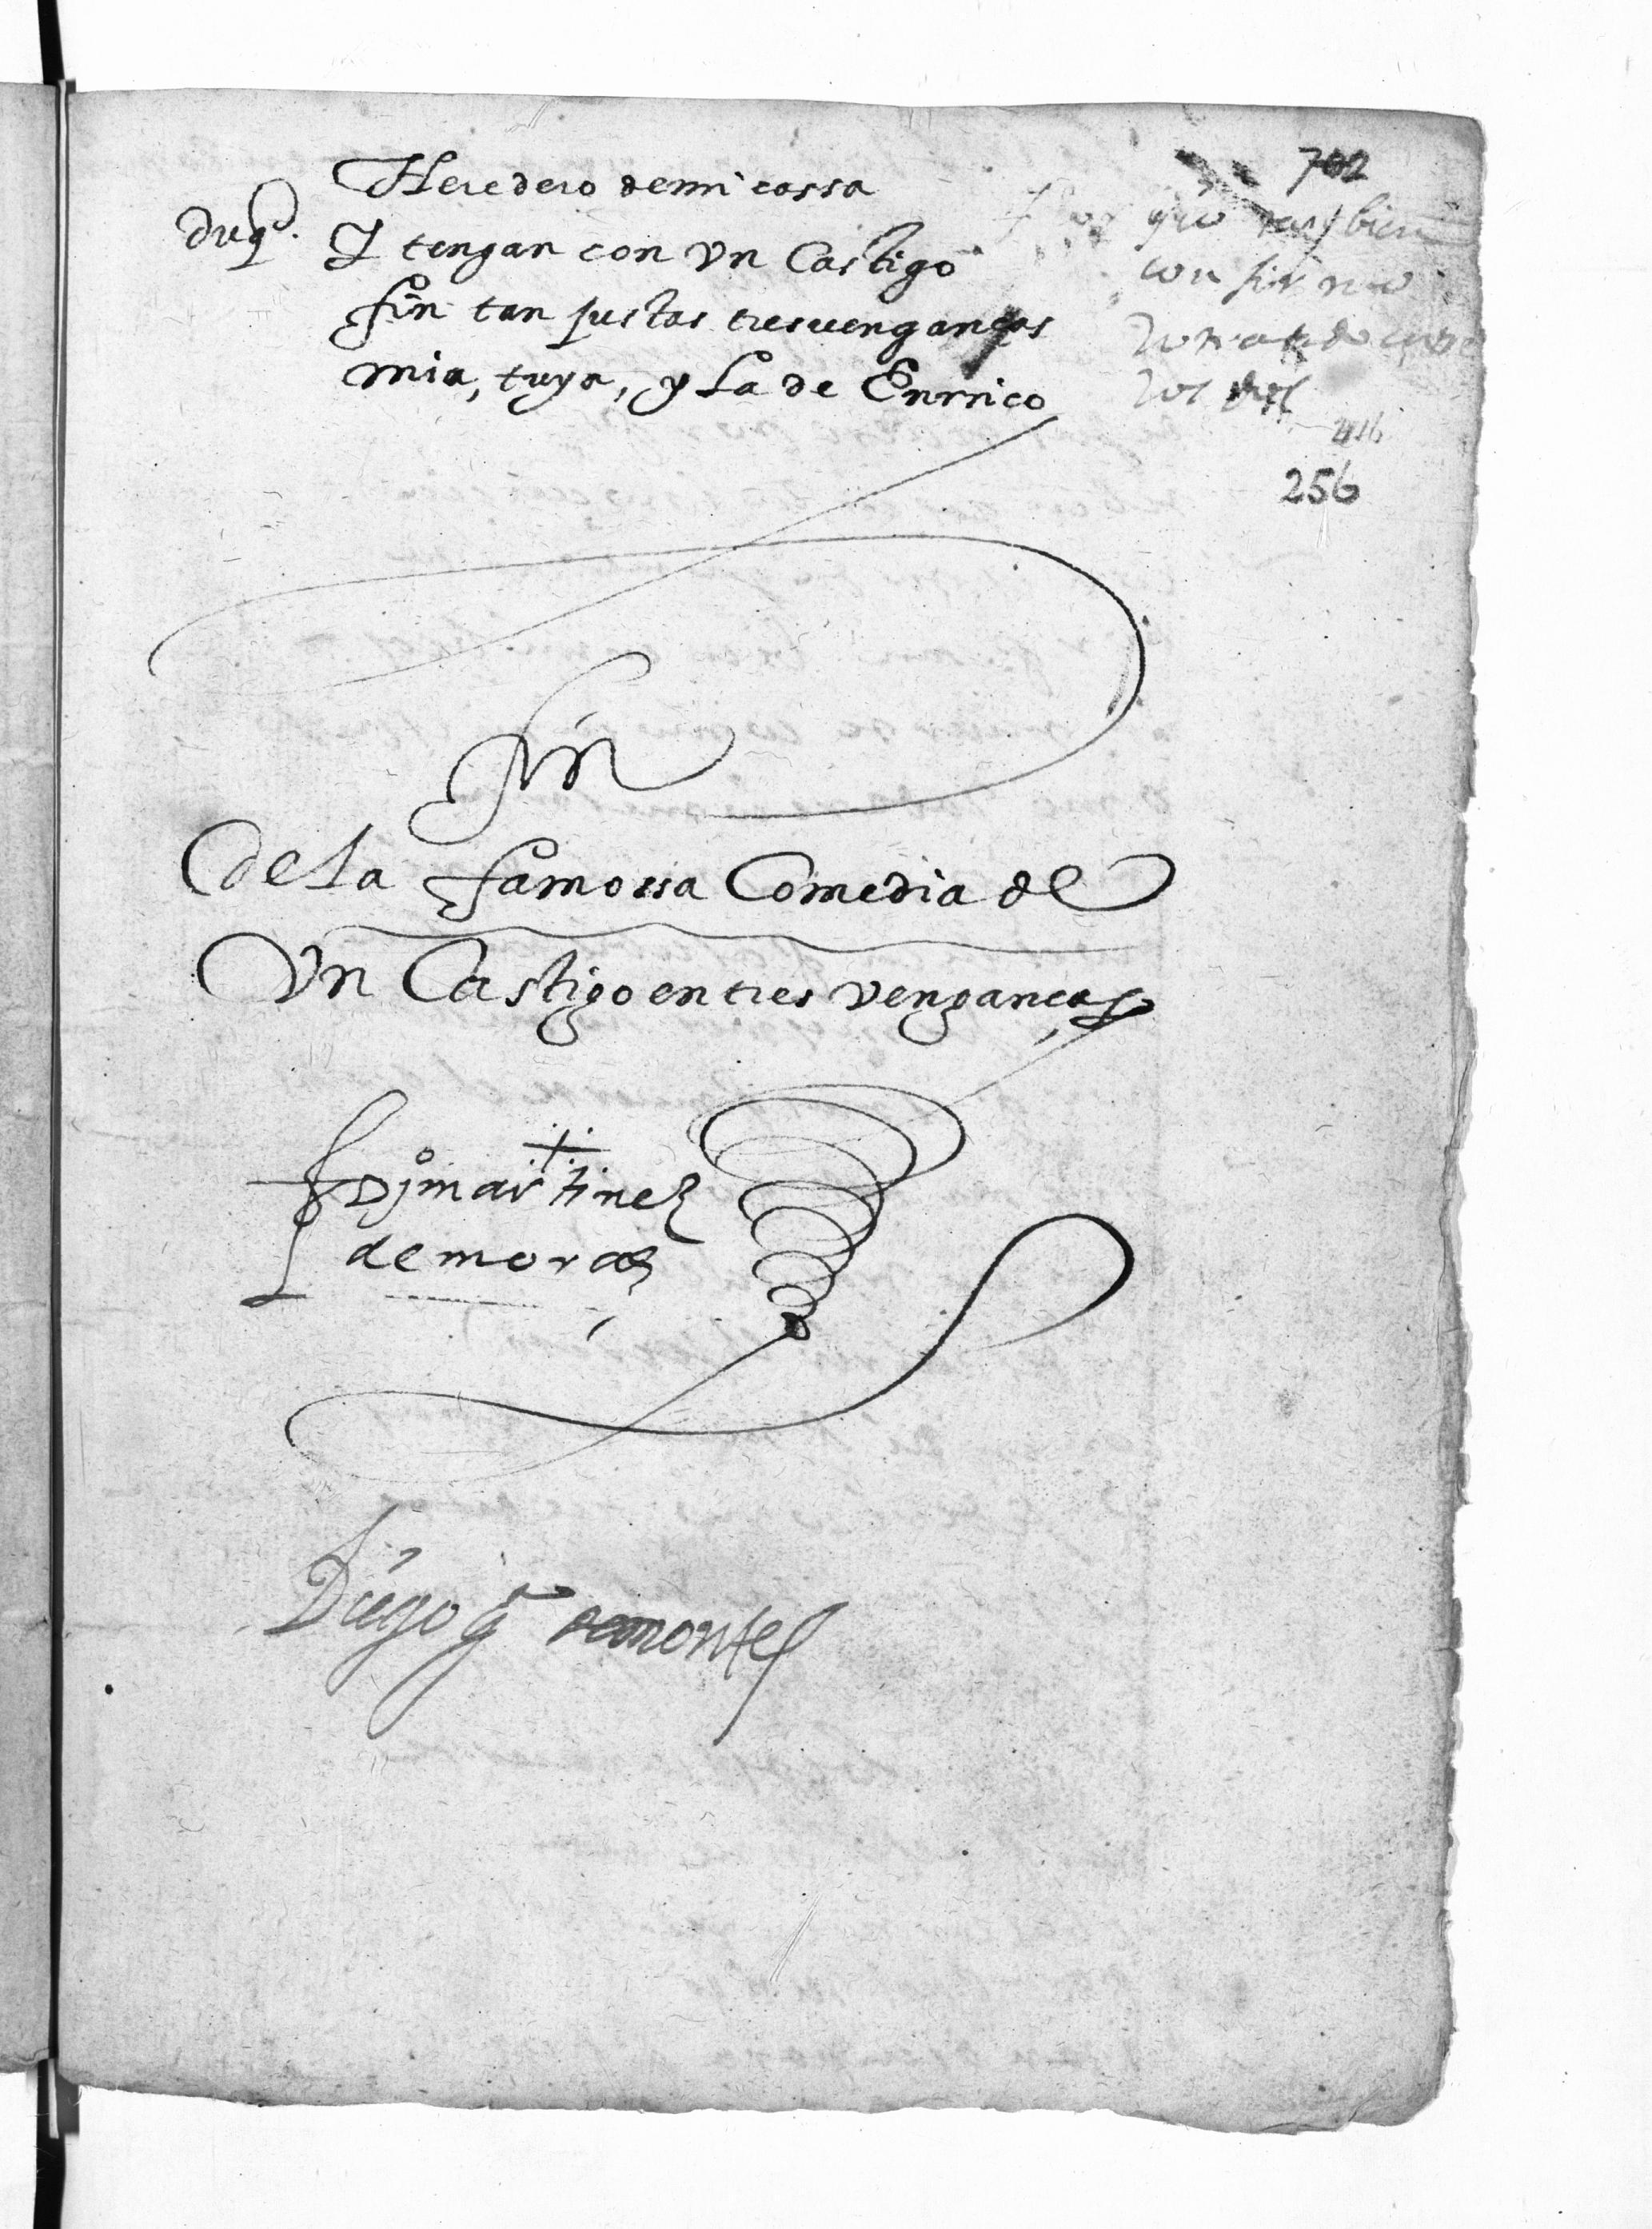 Heredero demi cassa
duq. Y tengan con vn Castigo
fin tan justas tresuenganças
mia, tuya, y La de Enrrico
702
bien
los dos
416
256
fin
de La famossa Comedia de
vn Castigo en tres venganças
martinez
de mora
Diego de montes